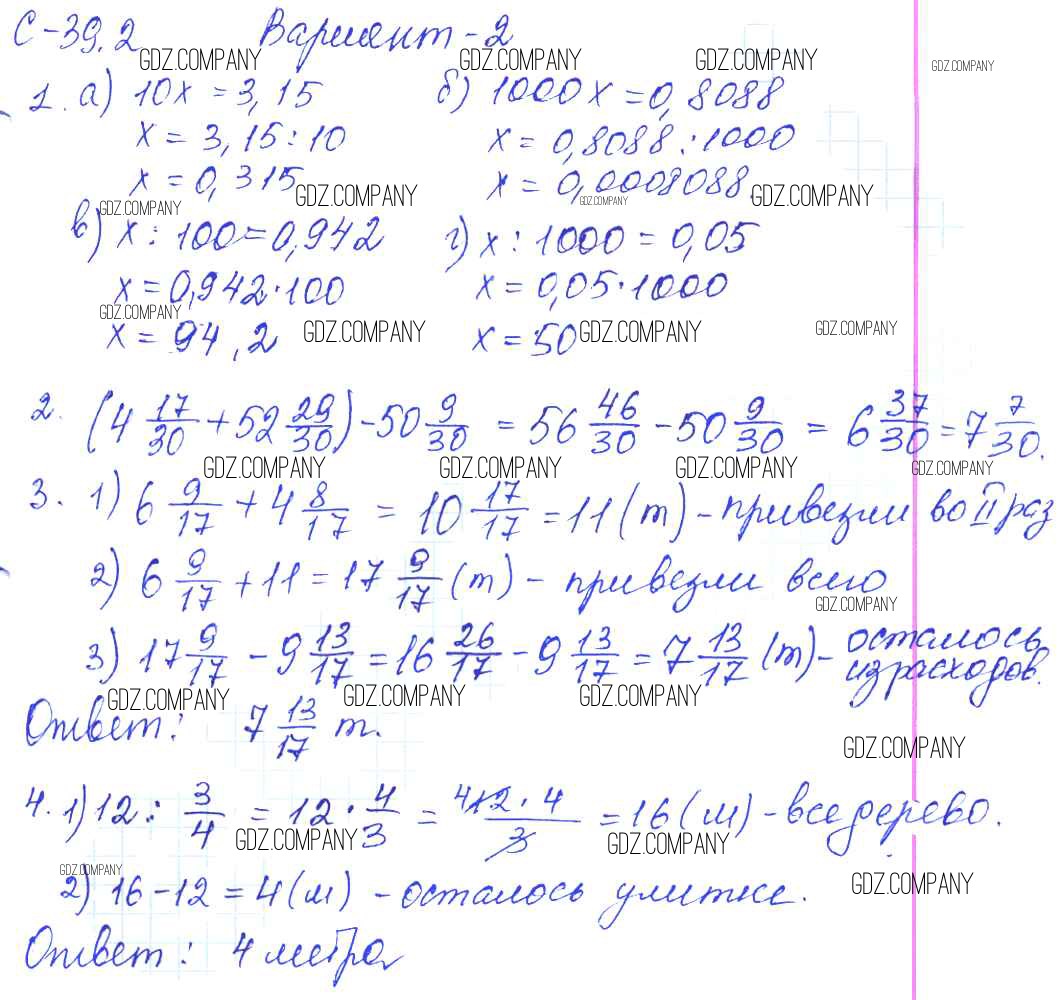 С-39.2 Вариант-2
GDZ.COMPANY GDZ.COMPANY GDZ.COMPANY GDZ.COMPANY
1. а) 10x = 3,15 б) 1000x = 0,8088
x = 3,15 : 10 x = 0,8088 : 1000
x = 0,315 x = 0,0008088
GDZ.COMPANY GDZ.COMPANY GDZ.COMPANY GDZ.COMPANY
в) x : 100 = 0,942 г) x : 1000 = 0,05
x = 0,942 · 100 x = 0,05 · 1000
GDZ.COMPANY
x = 94,2 GDZ.COMPANY x = 50 GDZ.COMPANY GDZ.COMPANY
2. (4 17/30 + 52 29/30) - 50 9/30 = 56 46/30 - 50 9/30 = 6 37/30 = 7 7/30.
GDZ.COMPANY GDZ.COMPANY GDZ.COMPANY GDZ.COMPANY
3. 1) 6 9/17 + 4 8/17 = 10 17/17 = 11 (т) - привезли во II раз
2) 6 9/17 + 11 = 17 9/17 (т) - привезли всего
GDZ.COMPANY
3) 17 9/17 - 9 13/17 = 16 26/17 - 9 13/17 = 7 13/17 (т) - осталось
израсходов.
GDZ.COMPANY GDZ.COMPANY GDZ.COMPANY
Ответ: 7 13/17 т.
GDZ.COMPANY
4. 1) 12 : 3/4 = 12 · 4/3 = 4 12 · 4/3 = 16 (м) - все дерево.
GDZ.COMPANY GDZ.COMPANY
GDZ.COMPANY GDZ.COMPANY
2) 16 - 12 = 4 (м) - осталось улитке.
Ответ: 4 метра